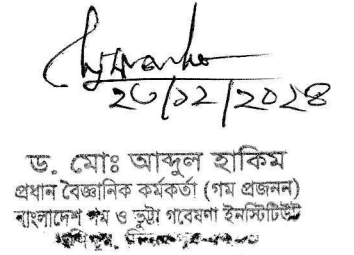 ২৬/১২/২০২৪
ড. মোঃ আব্দুল হাকিম
প্রধান বৈজ্ঞানিক কর্মকর্তা (গম প্রজনন)
বাংলাদেশ গম ও ভুট্টা গবেষণা ইনস্টিটিউট